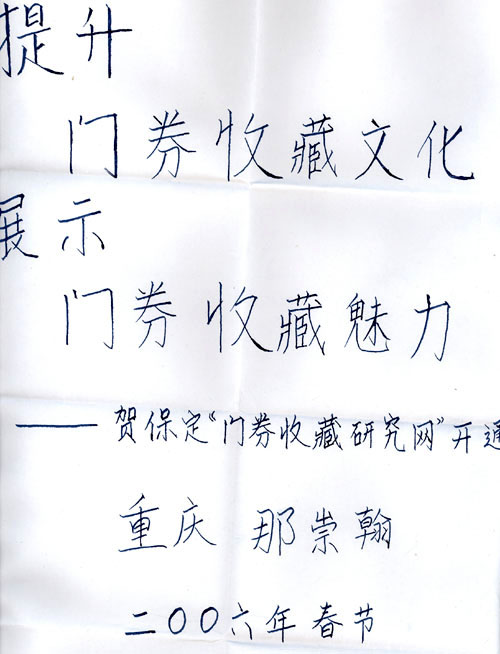 提升
门券收藏文化
展示
门券收藏魅力
——贺保定“门券收藏研究网”开通
重庆 那崇翰
二〇〇六年春节